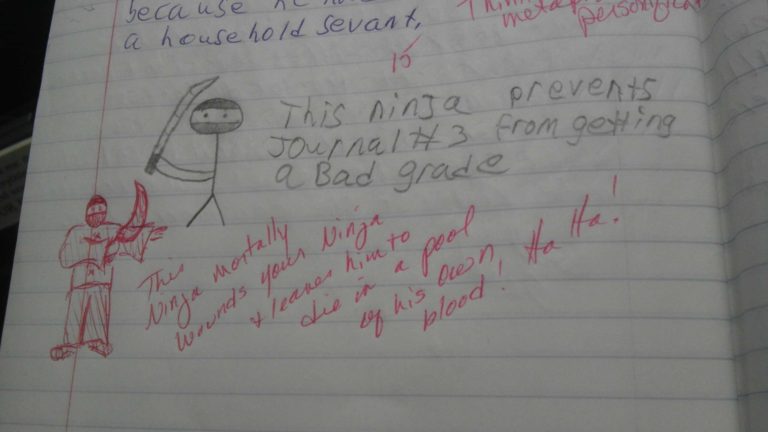 because he
a household sevant,
15
This ninja prevents
Journal #3 from getting
a Bad grade
This
Ninja mortally
wounds your Ninja
+ leaves him to
die in a pool
of his own
blood! Ha Ha!